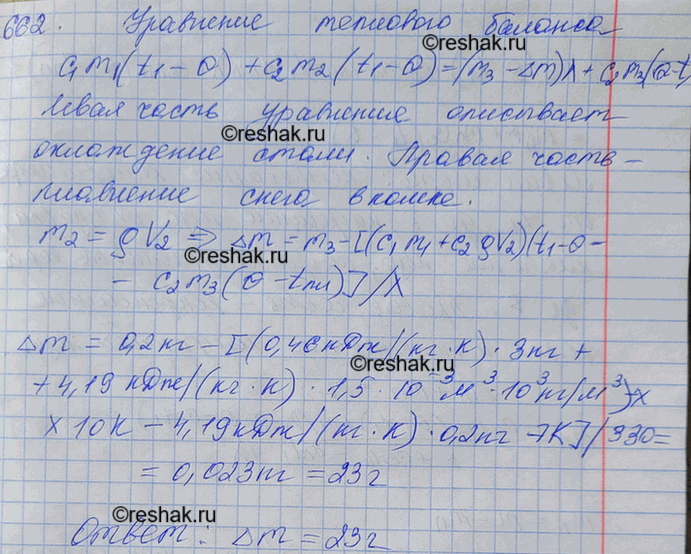 662. Уравнение теплового баланса
c₁m₁(t₁ - θ) + c₂m₂(t₁ - θ) = (m₃ - Δm)λ + c₂m₃(θ - t
©reshak.ru
Левая часть уравнение описывает
©reshak.ru
охлаждение стали. Правая часть -
плавление снега в комке.
m₂ = ρV₂ ⇒ Δm = m₃ - [(c₁m₁ + c₂ρV₂)(t₁ - θ -
©reshak.ru
- c₂m₃(θ - tпл)]/λ
Δm = 0,2кг - [(0,46кДж/(кг·К)·3кг +
©reshak.ru
+ 4,19 кДж/(кг·К)·1,5·10⁻³м³·10³кг/м³)×
×10К - 4,19кДж/(кг·К)·0,2кг·7К]/330=
= 0,023кг = 23г
©reshak.ru
Ответ: Δm = 23г